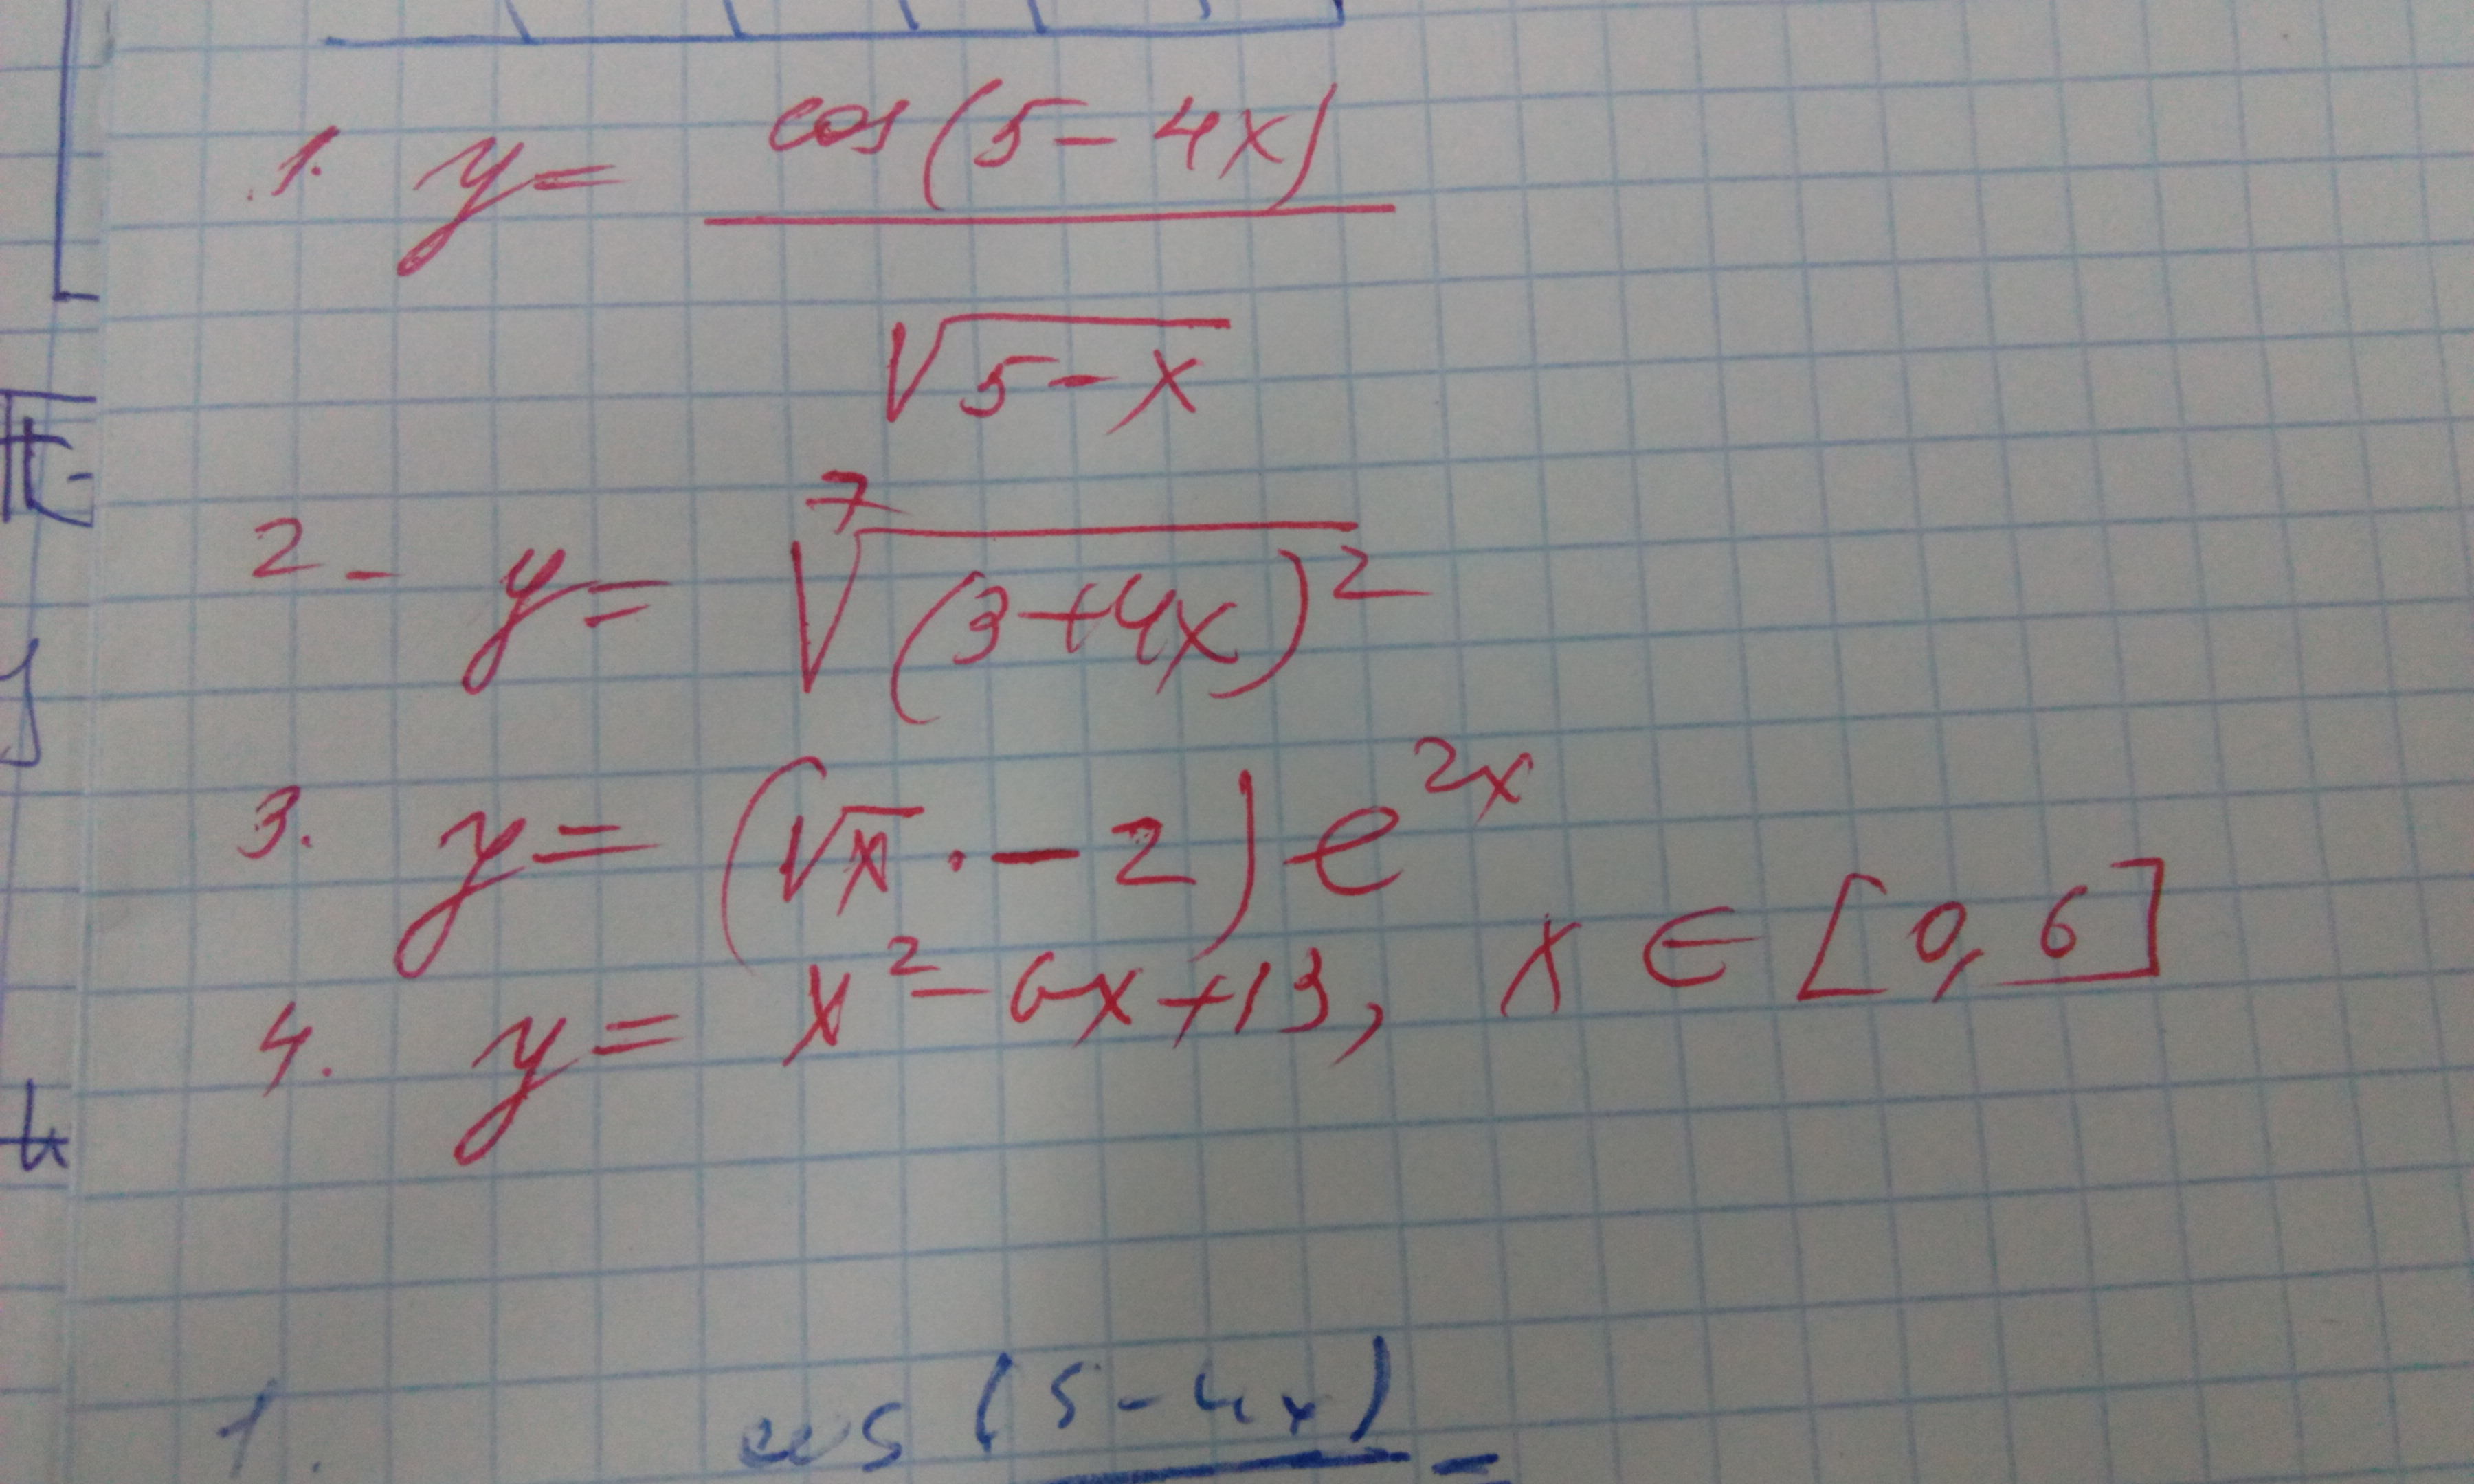 1. y = cos(5-4x) / √(5-x)
2- y = ⁷√(3+4x)²
3. y = (√x · - 2) e^2x
4. y = x² - 6x + 13, x ∈ [0, 6]
1. cos (5-4x) -